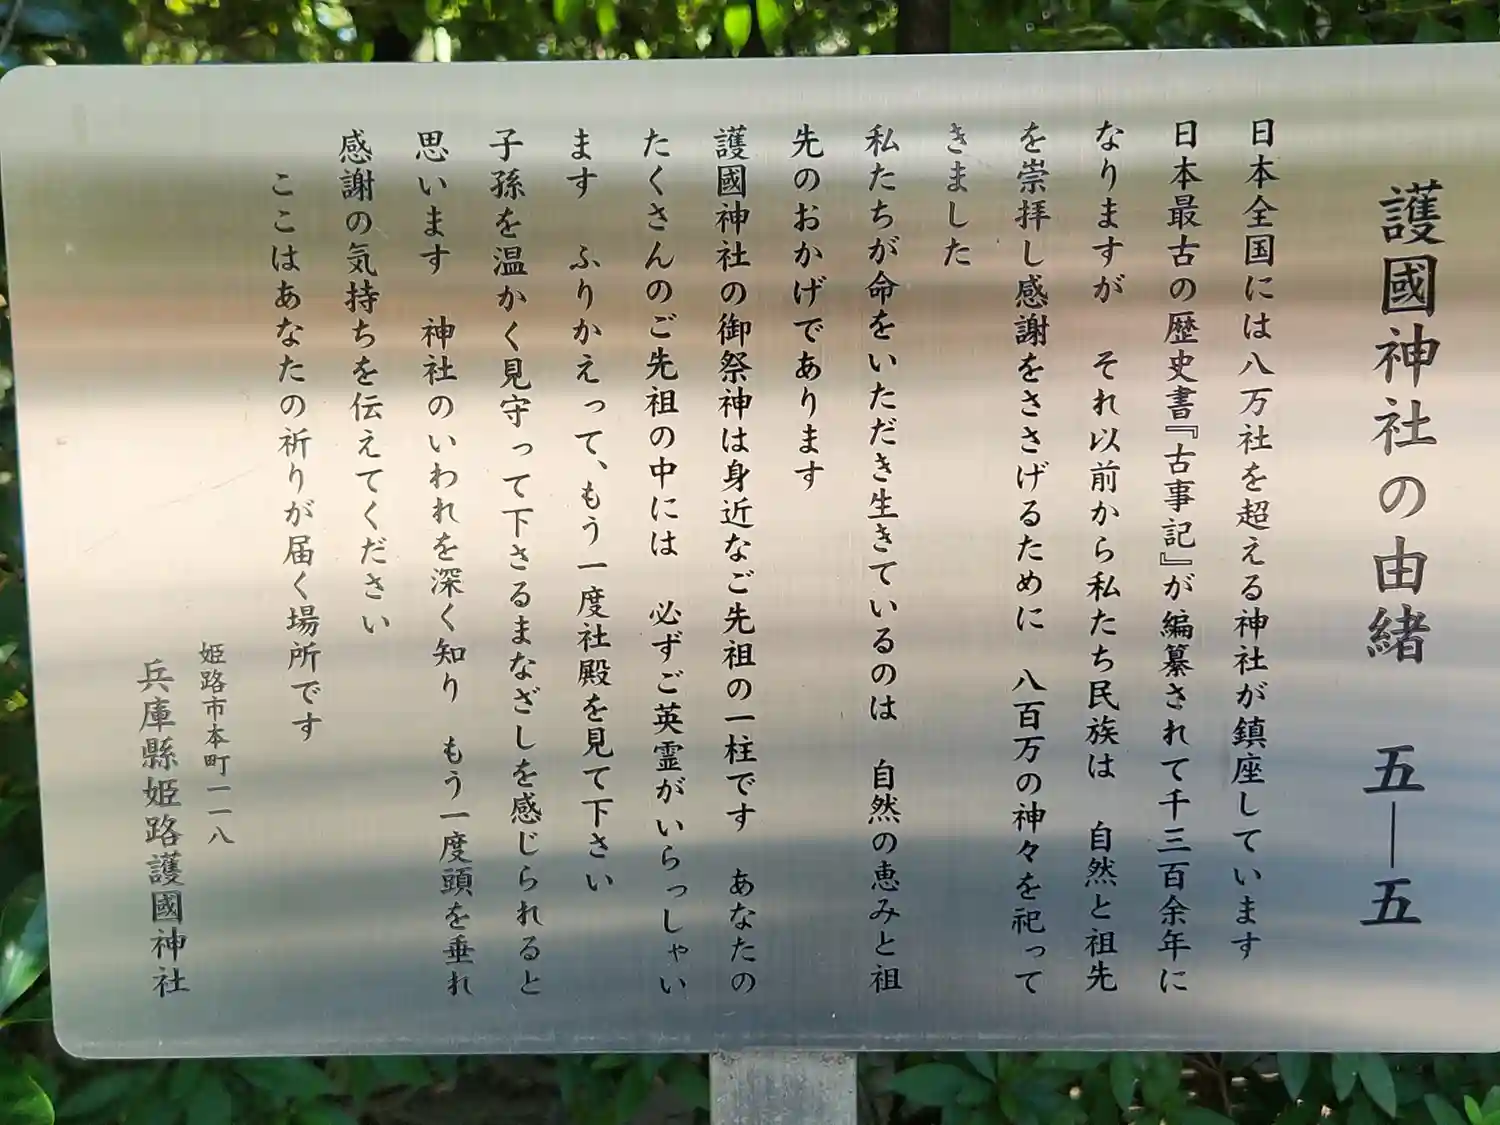 護國神社の由緒　五―五
日本全国には八万社を超える神社が鎮座しています
日本最古の歴史書『古事記』が編纂されて千三百余年に
なりますが　それ以前から私たち民族は　自然と祖先
を崇拝し感謝をささげるために　八百万の神々を祀って
きました
私たちが命をいただき生きているのは　自然の恵みと祖
先のおかげであります
護國神社の御祭神は身近なご先祖の一柱です　あなたの
たくさんのご先祖の中には　必ずご英霊がいらっしゃい
ます　ふりかえって、もう一度社殿を見て下さい
子孫を温かく見守って下さるまなざしを感じられると
思います　神社のいわれを深く知り　もう一度頭を垂れ
感謝の気持ちを伝えてください
ここはあなたの祈りが届く場所です
姫路市本町一一八
兵庫縣姫路護國神社